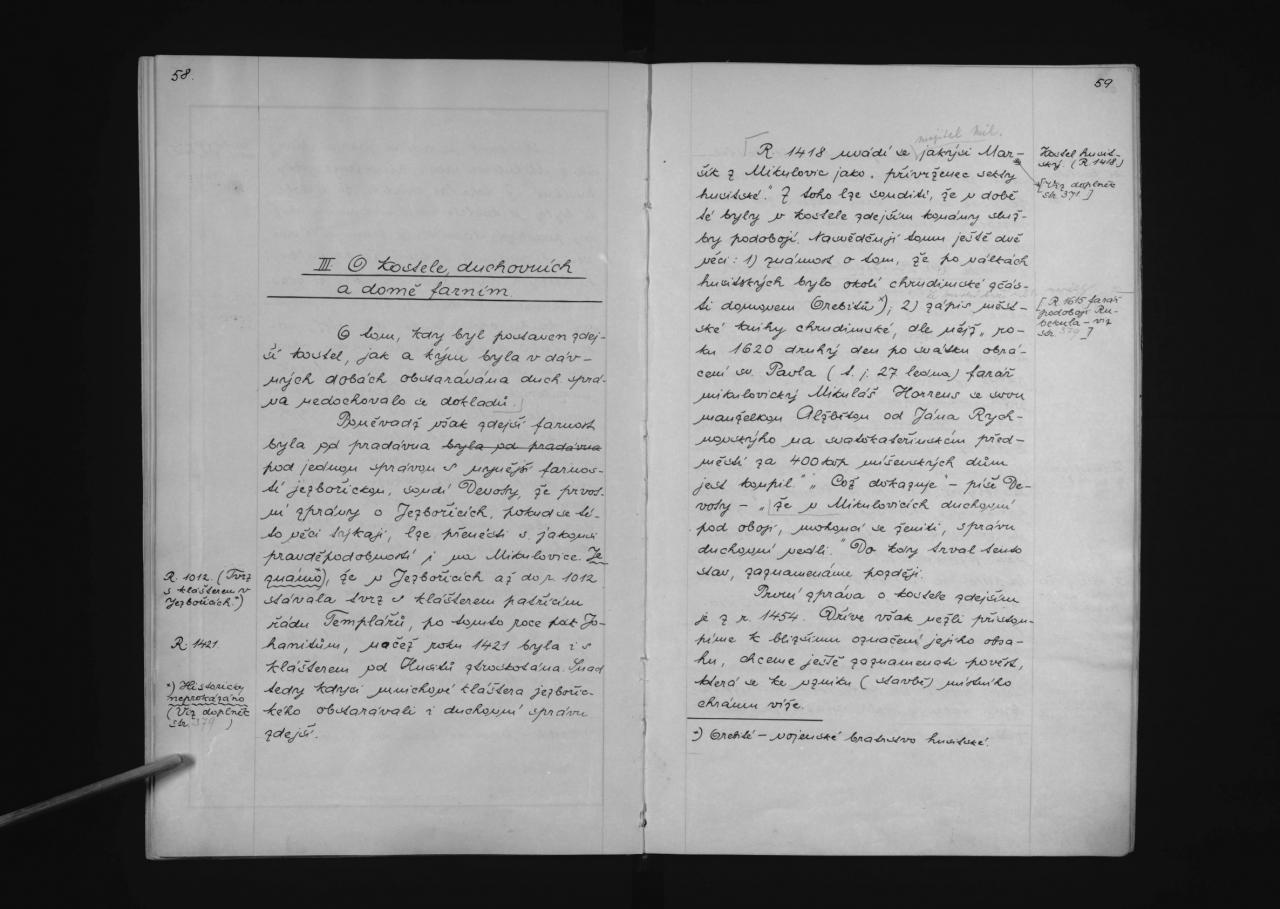 58.
III O kostele, duchovních
a domě farním.
O tom, kdy byl postaven zdej-
ší kostel, jak a kým byla v dáv-
ných dobách obstarávána duch. sprá-
va nedochovalo se dokladů.
Poněvadž však zdejší farnost
byla od pradávna byla od pradávna
pod jednou správou s nynější farnos-
tí jezbořickou, soudí Devoty, že prvot-
ní zprávy o Jezbořicích, pokud se té-
to věci týkají, lze přenésti s jakousi
pravděpodobností i na Mikulovice. Je
známo, že v Jezbořicích až do r. 1012
stávala tvrz s klášterem patřícím
řádu Templářů, po tomto roce pak Jo-
hanitům, načež roku 1421 byla i s
klášterem od Husitů ztroskotána. Snad
tedy kdysi mnichové kláštera jezbořic-
kého obstarávali i duchovní správu
zdejší.
R. 1012. (Tvrz
s klášterem v
Jezbořicích.*)
R. 1421.
*) Historicky
neprokázáno
(Viz doplněk
str. 379 )
59
majitel Mik.
R 1418 uvádí se jakýsi Mar-
šík z Mikulovic jako „přívrženec sekty
husitské." Z toho lze souditi, že v době
té byly v kostele zdejším konány služ-
by podobojí. Nasvědčují tomu ještě dvě
věci: 1) známost o tom, že po válkách
husitských bylo okolí chrudimské zčás-
ti domovem Orebitů*); 2) zápis měst-
ské knihy chrudimské, dle nějž „ro-
ku 1620 druhý den po svátku obrá-
cení sv. Pavla (t. j. 27 ledna) farář
mikulovický Mikuláš Horreus se svou
manželkou Alžbětou od Jána Rych-
novského na svatokateřinském před-
městí za 400 kop míšenských dům
jest koupil." „Což dokazuje" – píše De-
voty – „že v Mikulovicích duchovní
pod obojí, mohoucí se ženiti, správu
duchovní vedli." Do kdy trval tento
stav, zaznamenáme později.
První zpráva o kostele zdejším
je z r. 1454. Dříve však nežli přistou-
píme k bližšímu označení jejího obsa-
hu, chceme ještě zaznamenati pověst,
která se ke vzniku (stavbě) místního
chrámu víže.
*) Orebité – vojenské bratrstvo husitské.
Kostel husit-
ský. (R. 1418)
[Viz doplněk
str. 371 ]
[ R 1615 farář
podobojí Ru-
bekula – viz
str. 379 ]